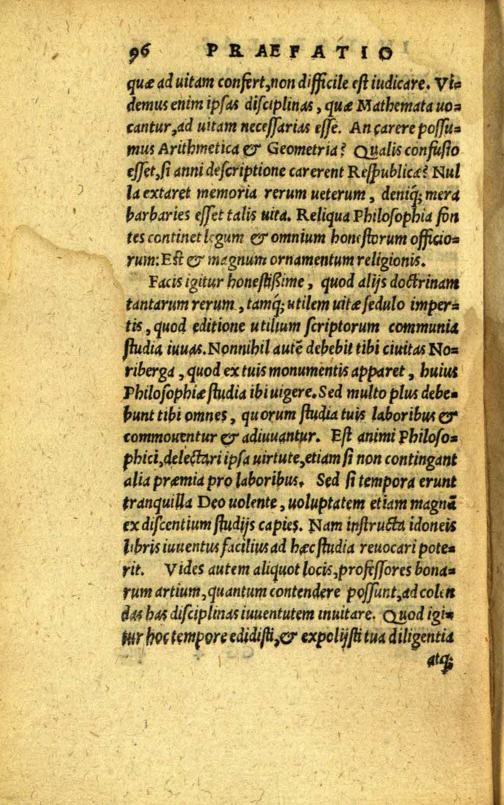 96 PRAEFATIO
quæ ad uitam confert, non difficile est iudicare. Vi=
demus enim ipsas disciplinas, quæ Mathemata uo=
cantur, ad uitam necessarias esse. An carere possu=
mus Arithmetica & Geometria? Qualis confusio
esset, si anni descriptione carerent Respublicæ? Nul
la extaret memoria rerum ueterum, deniq; mera
barbaries esset talis uita. Reliqua Philosophia fon
tes continet legum & omnium honestorum officio=
rum: Est & magnum ornamentum religionis.
Facis igitur honestißime, quod alijs doctrinam
tantarum rerum, tamq; utilem uitæ sedulo imper=
tis, quod editione utilium scriptorum communia
studia iuuas. Nonnihil autē debebit tibi ciuitas No=
riberga, quod ex tuis monumentis apparet, huius
Philosophiæ studia ibi uigere. Sed multo plus debe=
bunt tibi omnes, quorum studia tuis laboribus &
commouentur & adiuuantur. Est animi Philoso=
phici, delectari ipsa uirtute, etiam si non contingant
alia præmia pro laboribus. Sed si tempora erunt
tranquilla Deo uolente, uoluptatem etiam magnā
ex discentium studijs capies. Nam instructa idoneis
libris iuuentus facilius ad hæc studia reuocari pote=
rit. Vides autem aliquot locis, professores bona=
rum artium, quantum contendere possunt, ad colen
das has disciplinas iuuentutem inuitare. Quod igi=
tur hoc tempore edidisti, & expolijsti tua diligentia
atq;